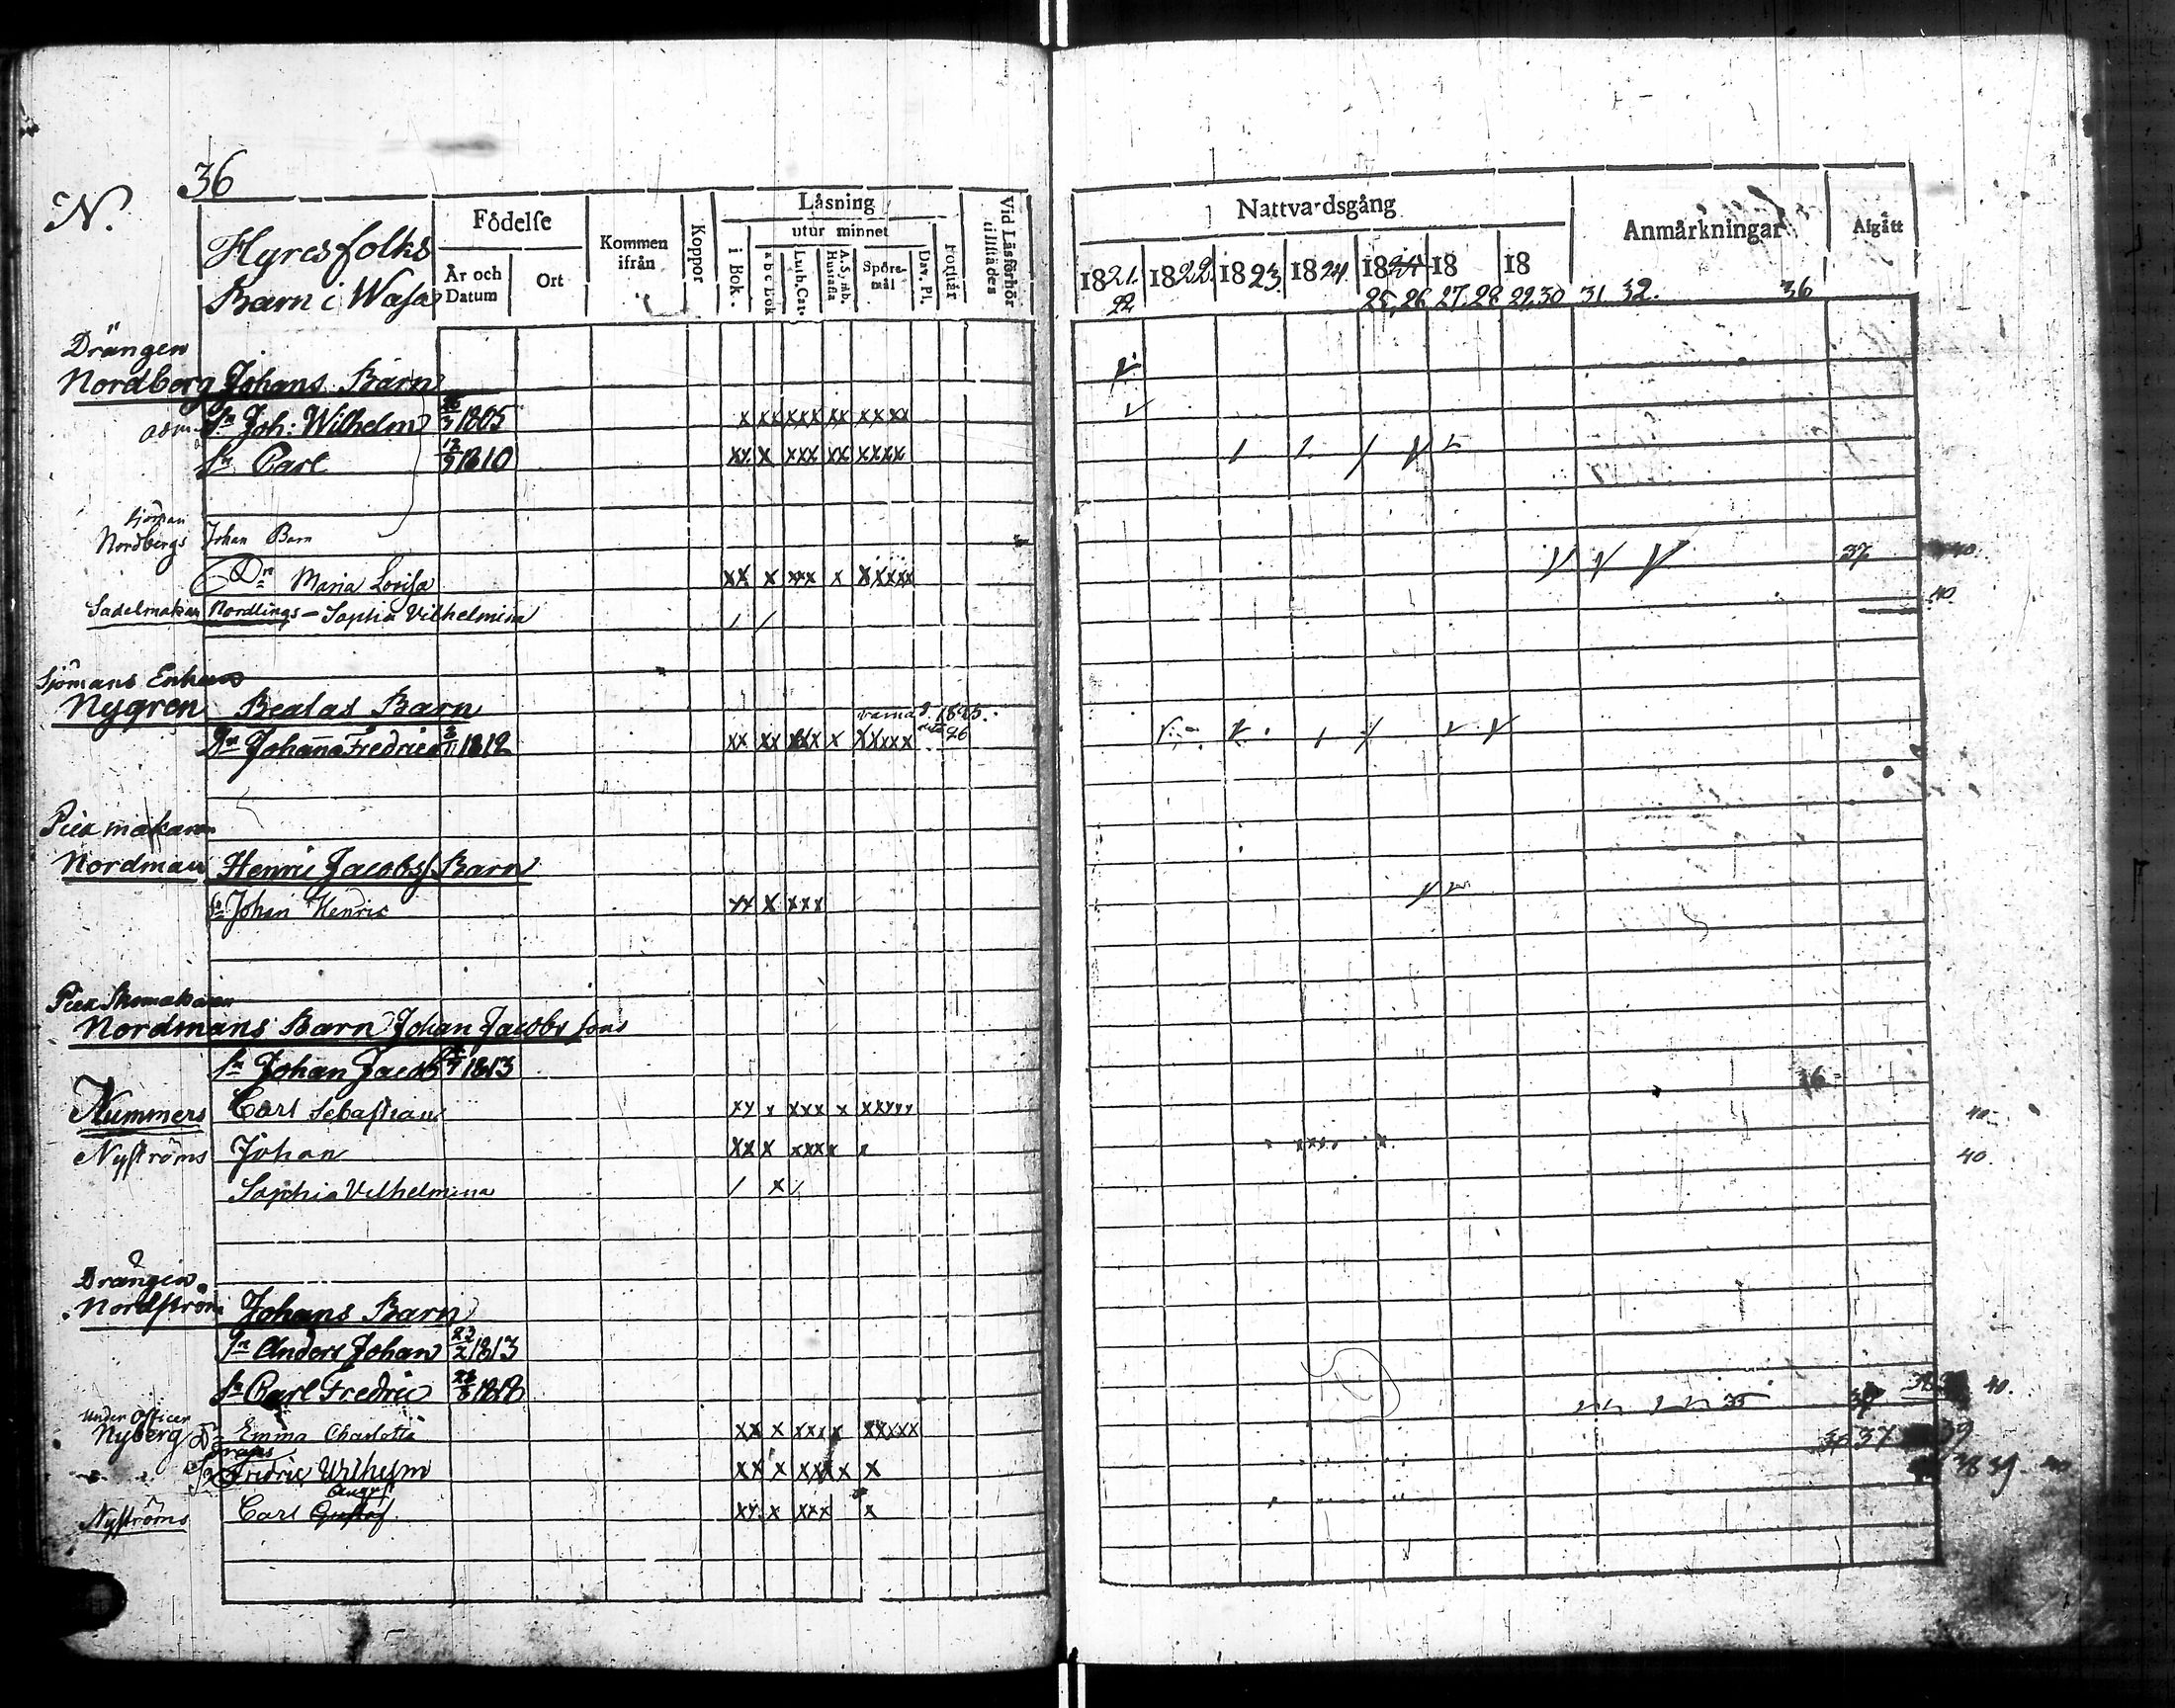 36
N.
Hyresfolks
Barn i Wasa
Födelse
År och Datum
Ort
Kommen ifrån
Koppor
Läsning
utur minnet
i Bok.
a b c Bok
Luth. Cat.
A. Symb. Hustafla
Spörsmål
Dav. Ps.
Förstår
Vid Läsförhör tillstädes
Nattvardsgång
Anmärkningar
Afgått
1821. 1822. 1823 1824 18 18 18
22 25, 26 27. 28 29 30 31 32. 36
Drängen
Nordberg Johans Barn
adm. Sn Joh: Wilhelm 3 1805 x xx xxx xx xxxx
Sn Carl 12/9 1810 xx x xxx xx xxxx
Sjöman
Nordbergs Johan Barn
Dr Maria Lovisa xx x xxx x xxxxx 37 40.
Sadelmakar Nordlings - Sophia Vilhelmina / / 40.
Sjömans Enkans
Nygren Beatas Barn
Dr Johanna Fredrica 1812 xx xx xxx x xxxxx 1825. 26
makaren
Nordman Henric Jacobs Barn
Sn Johan Henric xx x xxx
Skomakaren
Nordmans Barn Johan Jacobs sons
Sn Johan Jacob 1813
Nummers Carl Sebastian xx x xxx x xxxxx 40
Nyströms Johan xx x xxxx x 40.
Sophia Vilhelmina / x /
Drängen
Nordström Johans Barn
Sn Anders Johan 23/2 1813
Sn Carl Fredric 1818
Under Officer
Nyberg Dr Emma Charlotta xx x xxxx xxxxx 35 40.
Sn Fridric Wilhelm xx x xxxx x 37 39
38 39
August
Nyströms Carl Gustaf xx x xxx x